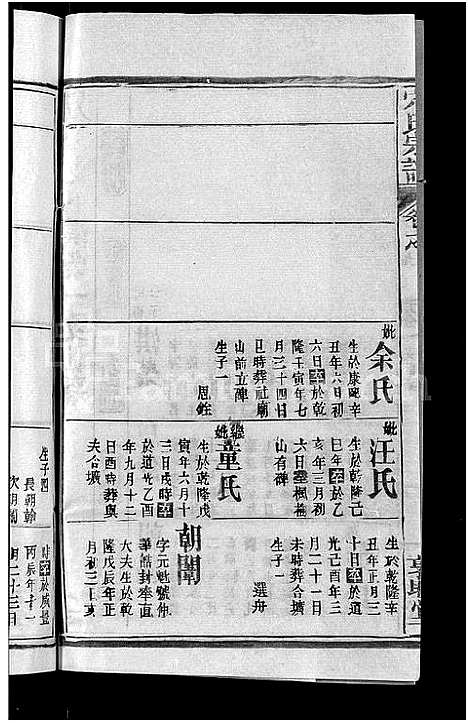 宋氏宗譜
妣余氏
生於康熙辛
丑年六月初
六日卒於乾
隆壬寅年七
月三十四日
巳時葬社廟
山前立碑
生子一
恩銓
妣汪氏
生於乾隆己
巳年卒於乙
亥年三月初
六日葬楓樹
山有碑
繼妣童氏
生於乾隆戊
寅年六月十
三日戌時卒
於道光乙酉
年九月十二
日酉時葬與
夫合壙
生於乾隆辛
丑年正月三
十日卒於道
光己酉年三
月二十一日
未時葬合壙
生子一
選舟
朝闈
字元魁號仲
華誥封奉直
大夫生於乾
隆戊辰年正
月初三日亥
生子四
長朝翰
時卒於咸豐
丙辰年十一
月二十三日